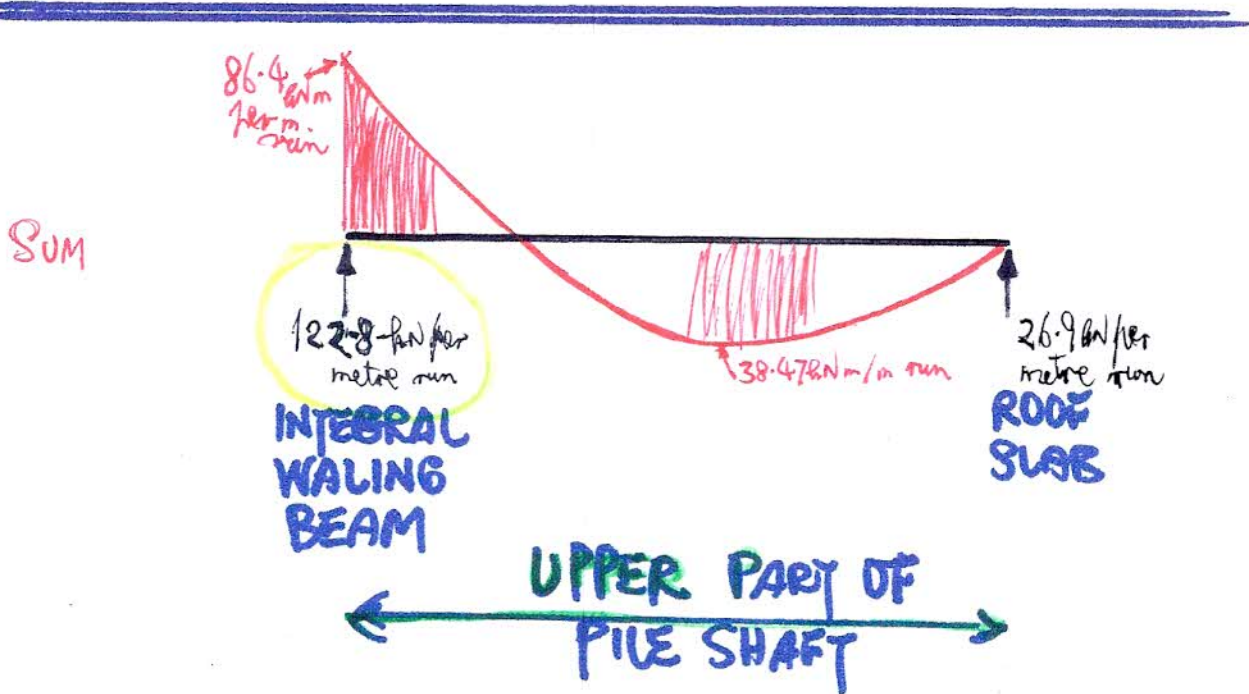 86.4 kNm
per m.
run
SUM
122.8 kN per
metre run
38.47kNm/m run
26.9 kN per
metre run
INTEGRAL
WALING
BEAM
ROOF
SLAB
UPPER PART OF
PILE SHAFT